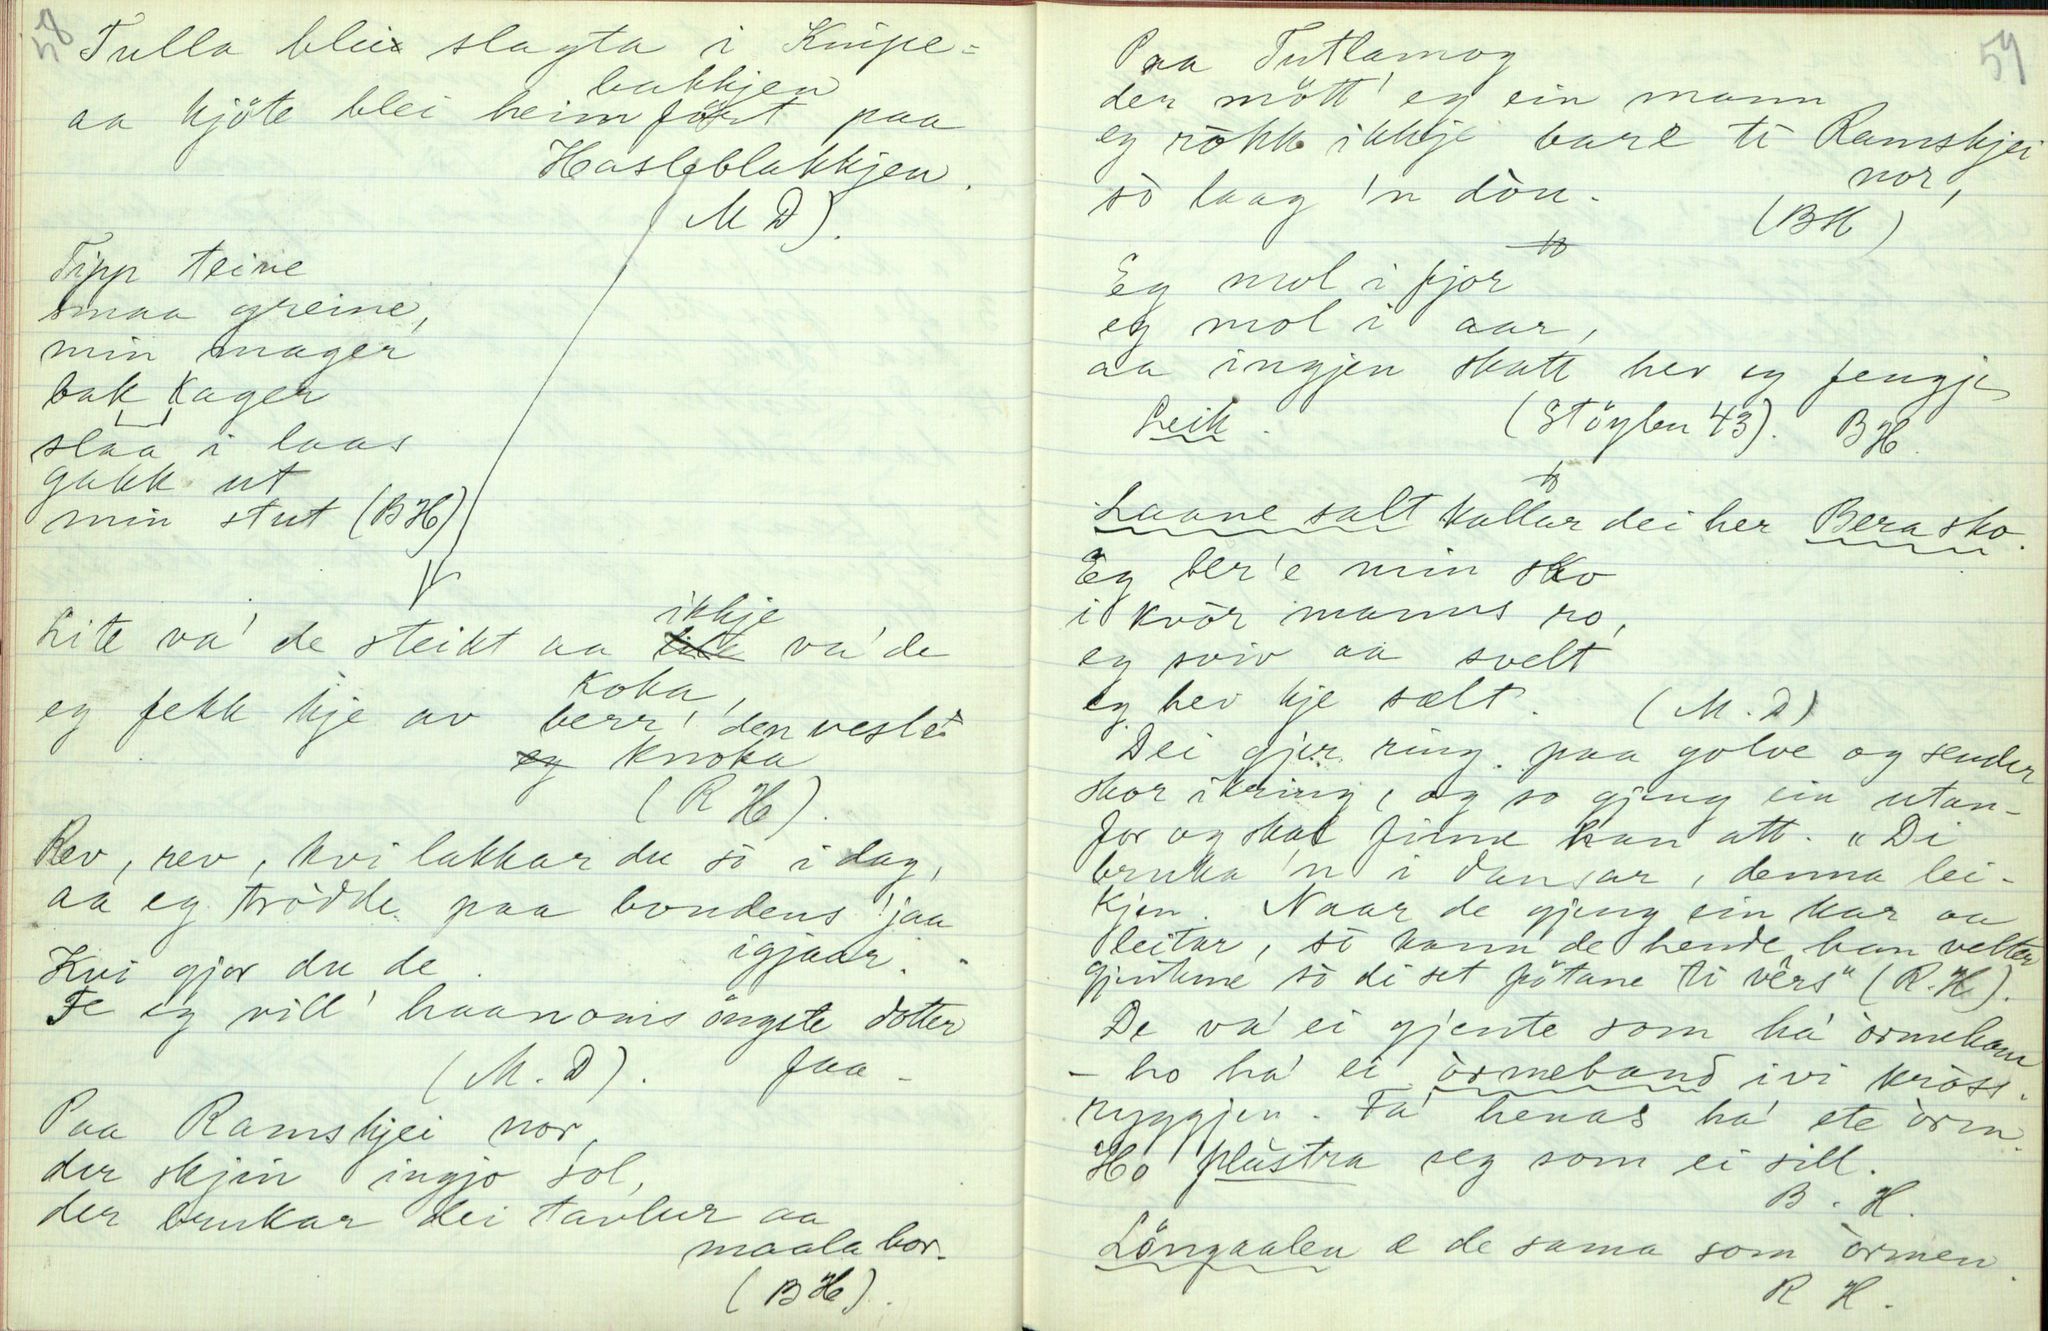 58
Tulla blei slagta i Knipe-
bakkjen
aa kjöte blei heimfört paa
Hasleblakkjen.
(M D).
Tipp teine
smaa greine,
min mager
bak kager
slaa i laas
gakk ut
min stut (BH)
Lite va' de steikt aa ikkje va' de
koka,
eg fekk kje av berr' den vesle
knoka
(R H).
Rev, rev, kvi lakkar du so i dag,
aa eg trödde paa bondens jaa
igjaar.
Kvi gjor du de.
Fe eg vill' haanoms öngste dotter
faa -
(M. D).
Paa Ramskjei nor,
der skjin ingjo sol,
der brukar dei tavlur aa
maala bor.
(BH).
59
Paa Tutlamog
der mött' eg ein mann
eg rökk ikkje bare ti Ramskjei
nor,
sò laag 'n dòn.
(BH)
Eg mol i fjor
eg mol i aar,
aa ingjen skatt hev eg fengje
Leik. (Stöylen 43). BH.
Laane salt kallar dei her Bera sko.
Eg ber'e min sko
i kvòr manns ro,
eg sviv aa svelt
eg hev kje sælt. (M. D)
Dei gjer ring paa golve og sender
skor ikring, og so gjeng ein utan-
for og skal finne han att. "Di
bruka 'n i dansar, denna lei-
kjen. Naar de gjeng ein kar aa
leitar, sò kann de hende han velter
gjentune sò di set fötane ti vêrs" (R. H).
De va' ei gjente som ha' òrmeham
- ho ha' ei òrmeband ivi kròss.
ryggjen. Fa' henas ha' ete òrm.
Ho plustra seg som ei sill.
B. H.
Löngaalen e de sama som òrmen.
R H.